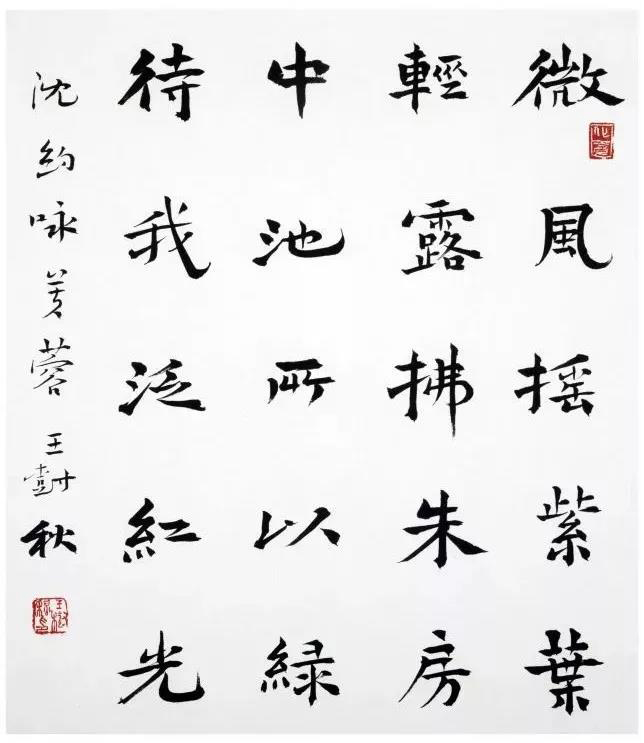 微風摇紫葉
輕露拂朱房
中池所以綠
待我泛紅光
沈約咏芙蓉 王澍秋